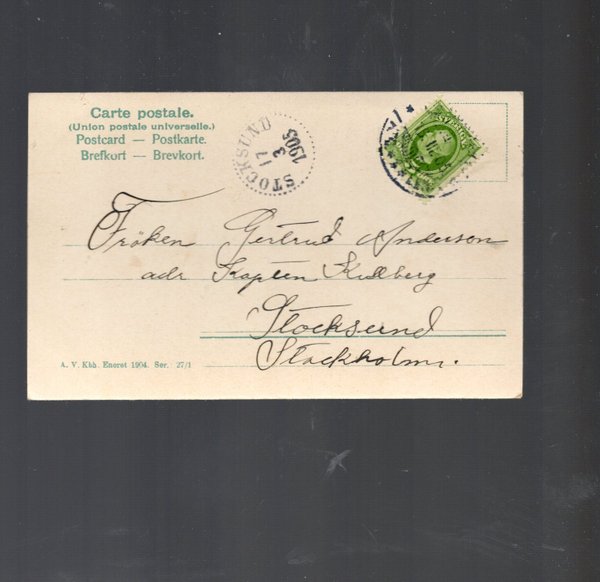 Carte postale.
(Union postale universelle.)
Postcard — Postkarte.
Brefkort — Brevkort.
STOCKSUND
17
3
1905
SVERIGE
Fröken Gertrud Anderson
adr Kapten Kullberg
Stocksund
Stockholm.
A. V. Kbh. Eneret 1904. Ser. 27/1